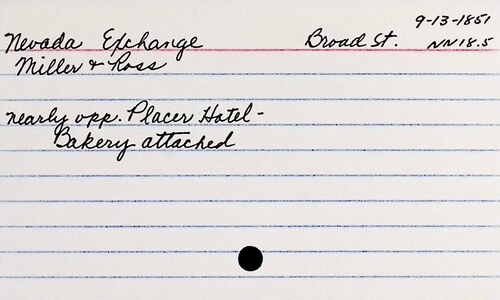 9-13-1851
Nevada Exchange Broad St. NN18.5
Miller & Ross
nearly opp. Placer Hotel -
Bakery attached